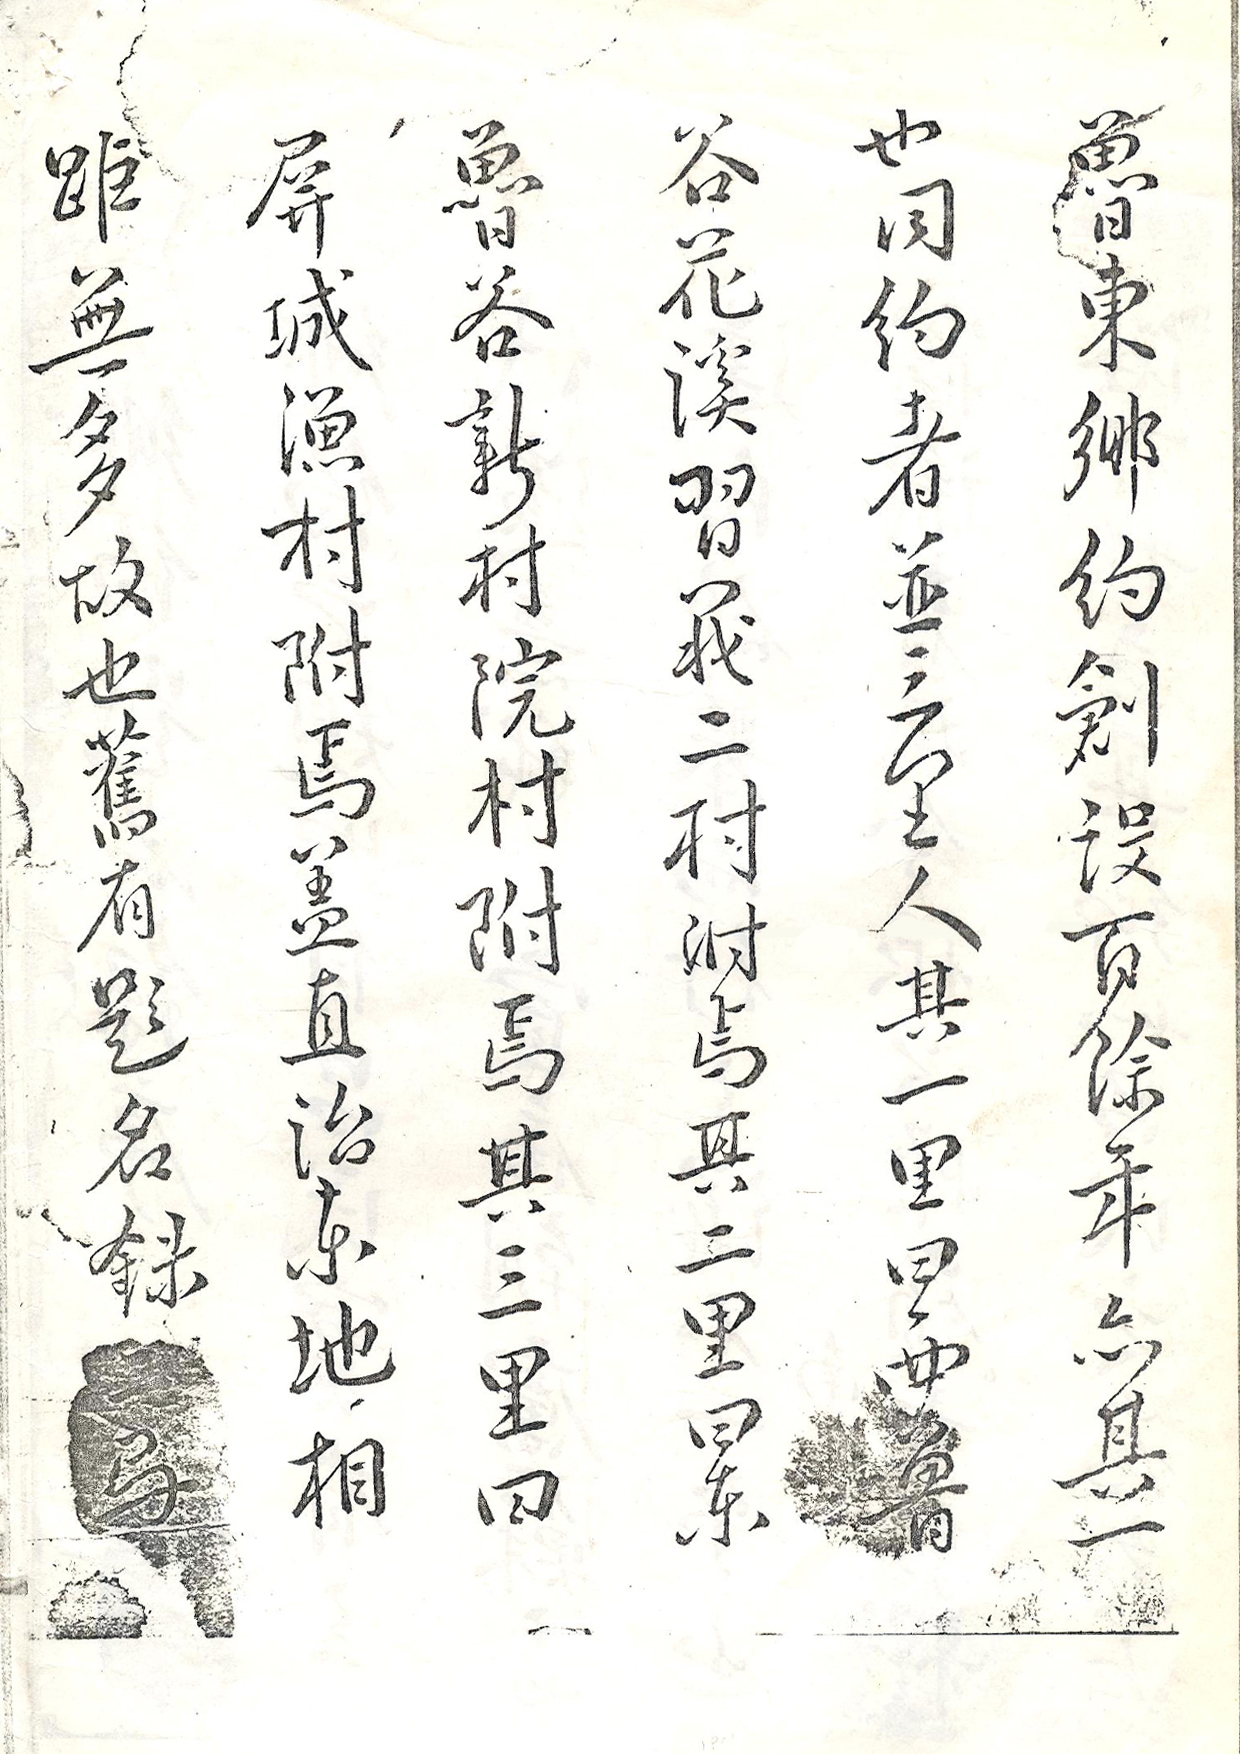 魯東鄉約創設百餘年亦其一
也同約者並三里人其一里曰西魯
谷花溪習我二村附焉其二里曰東
魯谷新村院村附焉其三里曰
屏城漁村附焉盖直治東地相
距無多故也舊有題名錄